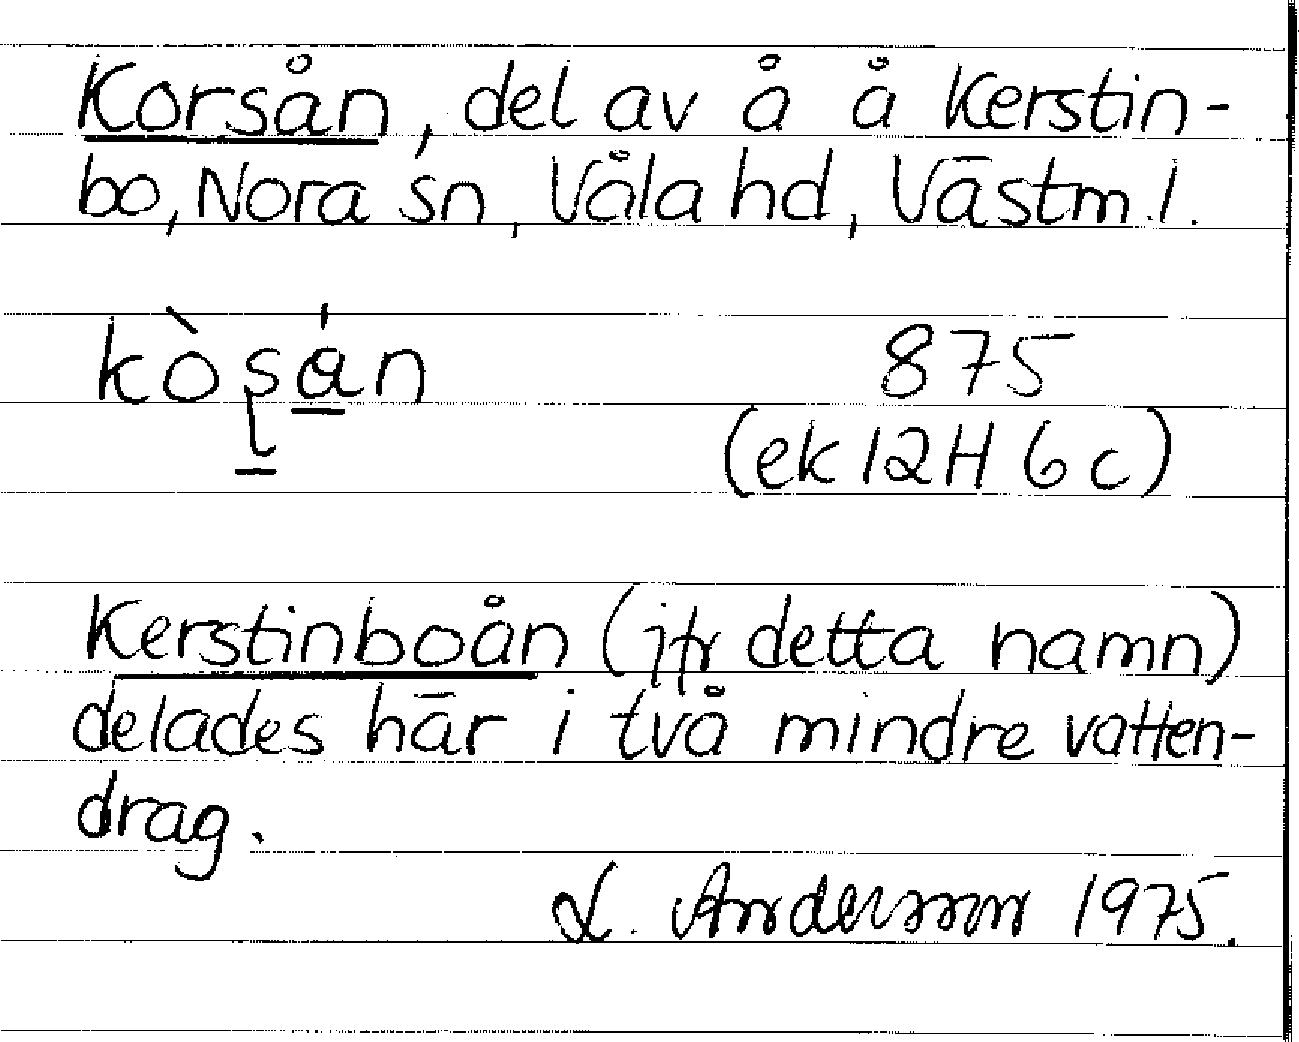 Korsån, del av å å Kerstin-
bo, Nora sn, Våla hd, Västm. l.
kòşán 875
(ek 12H 6c)
Kerstinboån (jfr detta namn)
delades här i två mindre vatten-
drag.
L. Andersson 1975.